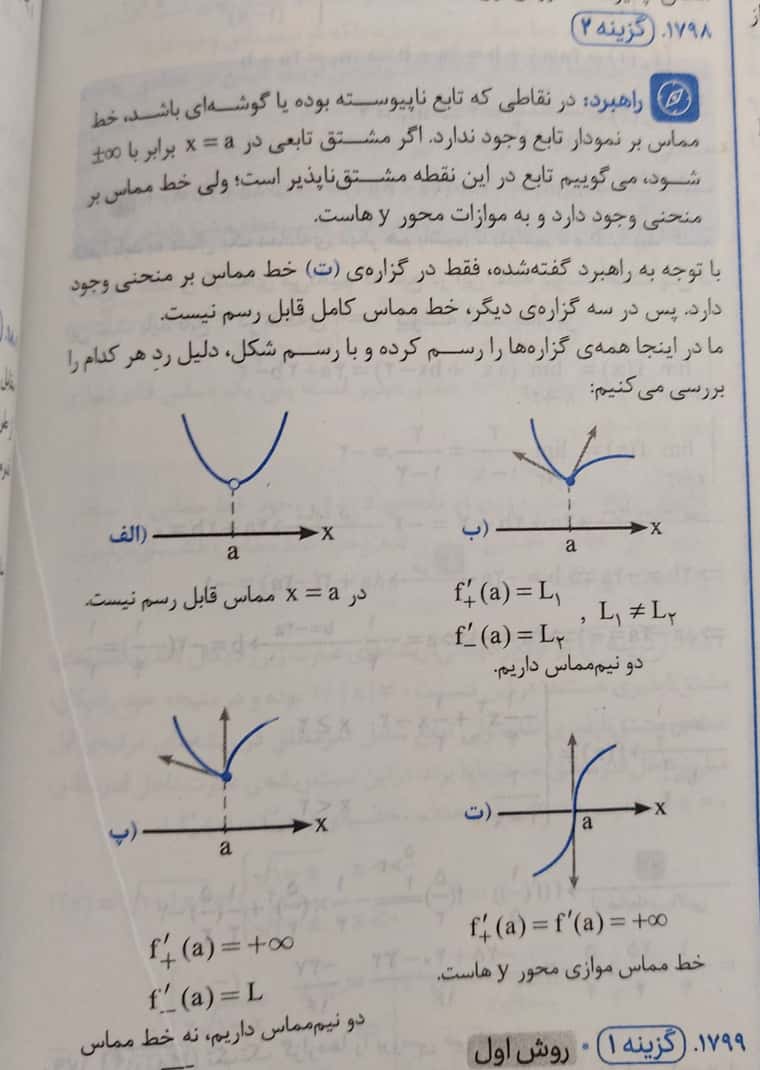 ۱۷۹۸. گزینه ۲
راهبرد: در نقاطی که تابع ناپیوسته بوده یا گوشه‌ای باشد، خط
مماس بر نمودار تابع وجود ندارد. اگر مشتق تابعی در x = a برابر با ±∞
شود، می‌گوییم تابع در این نقطه مشتق‌ناپذیر است؛ ولی خط مماس بر
منحنی وجود دارد و به موازات محور y هاست.
با توجه به راهبرد گفته‌شده، فقط در گزاره‌ی (ت) خط مماس بر منحنی وجود
دارد. پس در سه گزاره‌ی دیگر، خط مماس کامل قابل رسم نیست.
ما در اینجا همه‌ی گزاره‌ها را رسم کرده و با رسم شکل، دلیل ردِ هر کدام را
بررسی می‌کنیم:
ب)
x
a
f′₊(a) = L₁
f′₋(a) = L₂ , L₁ ≠ L₂
دو نیم‌مماس داریم.
الف)
x
a
در x = a مماس قابل رسم نیست.
ت)
x
a
f′₊(a) = f′(a) = +∞
خط مماس موازی محور y هاست.
پ)
x
a
f′₊(a) = +∞
f′₋(a) = L
دو نیم‌مماس داریم، نه خط مماس
۱۷۹۹. گزینه ۱ • روش اول